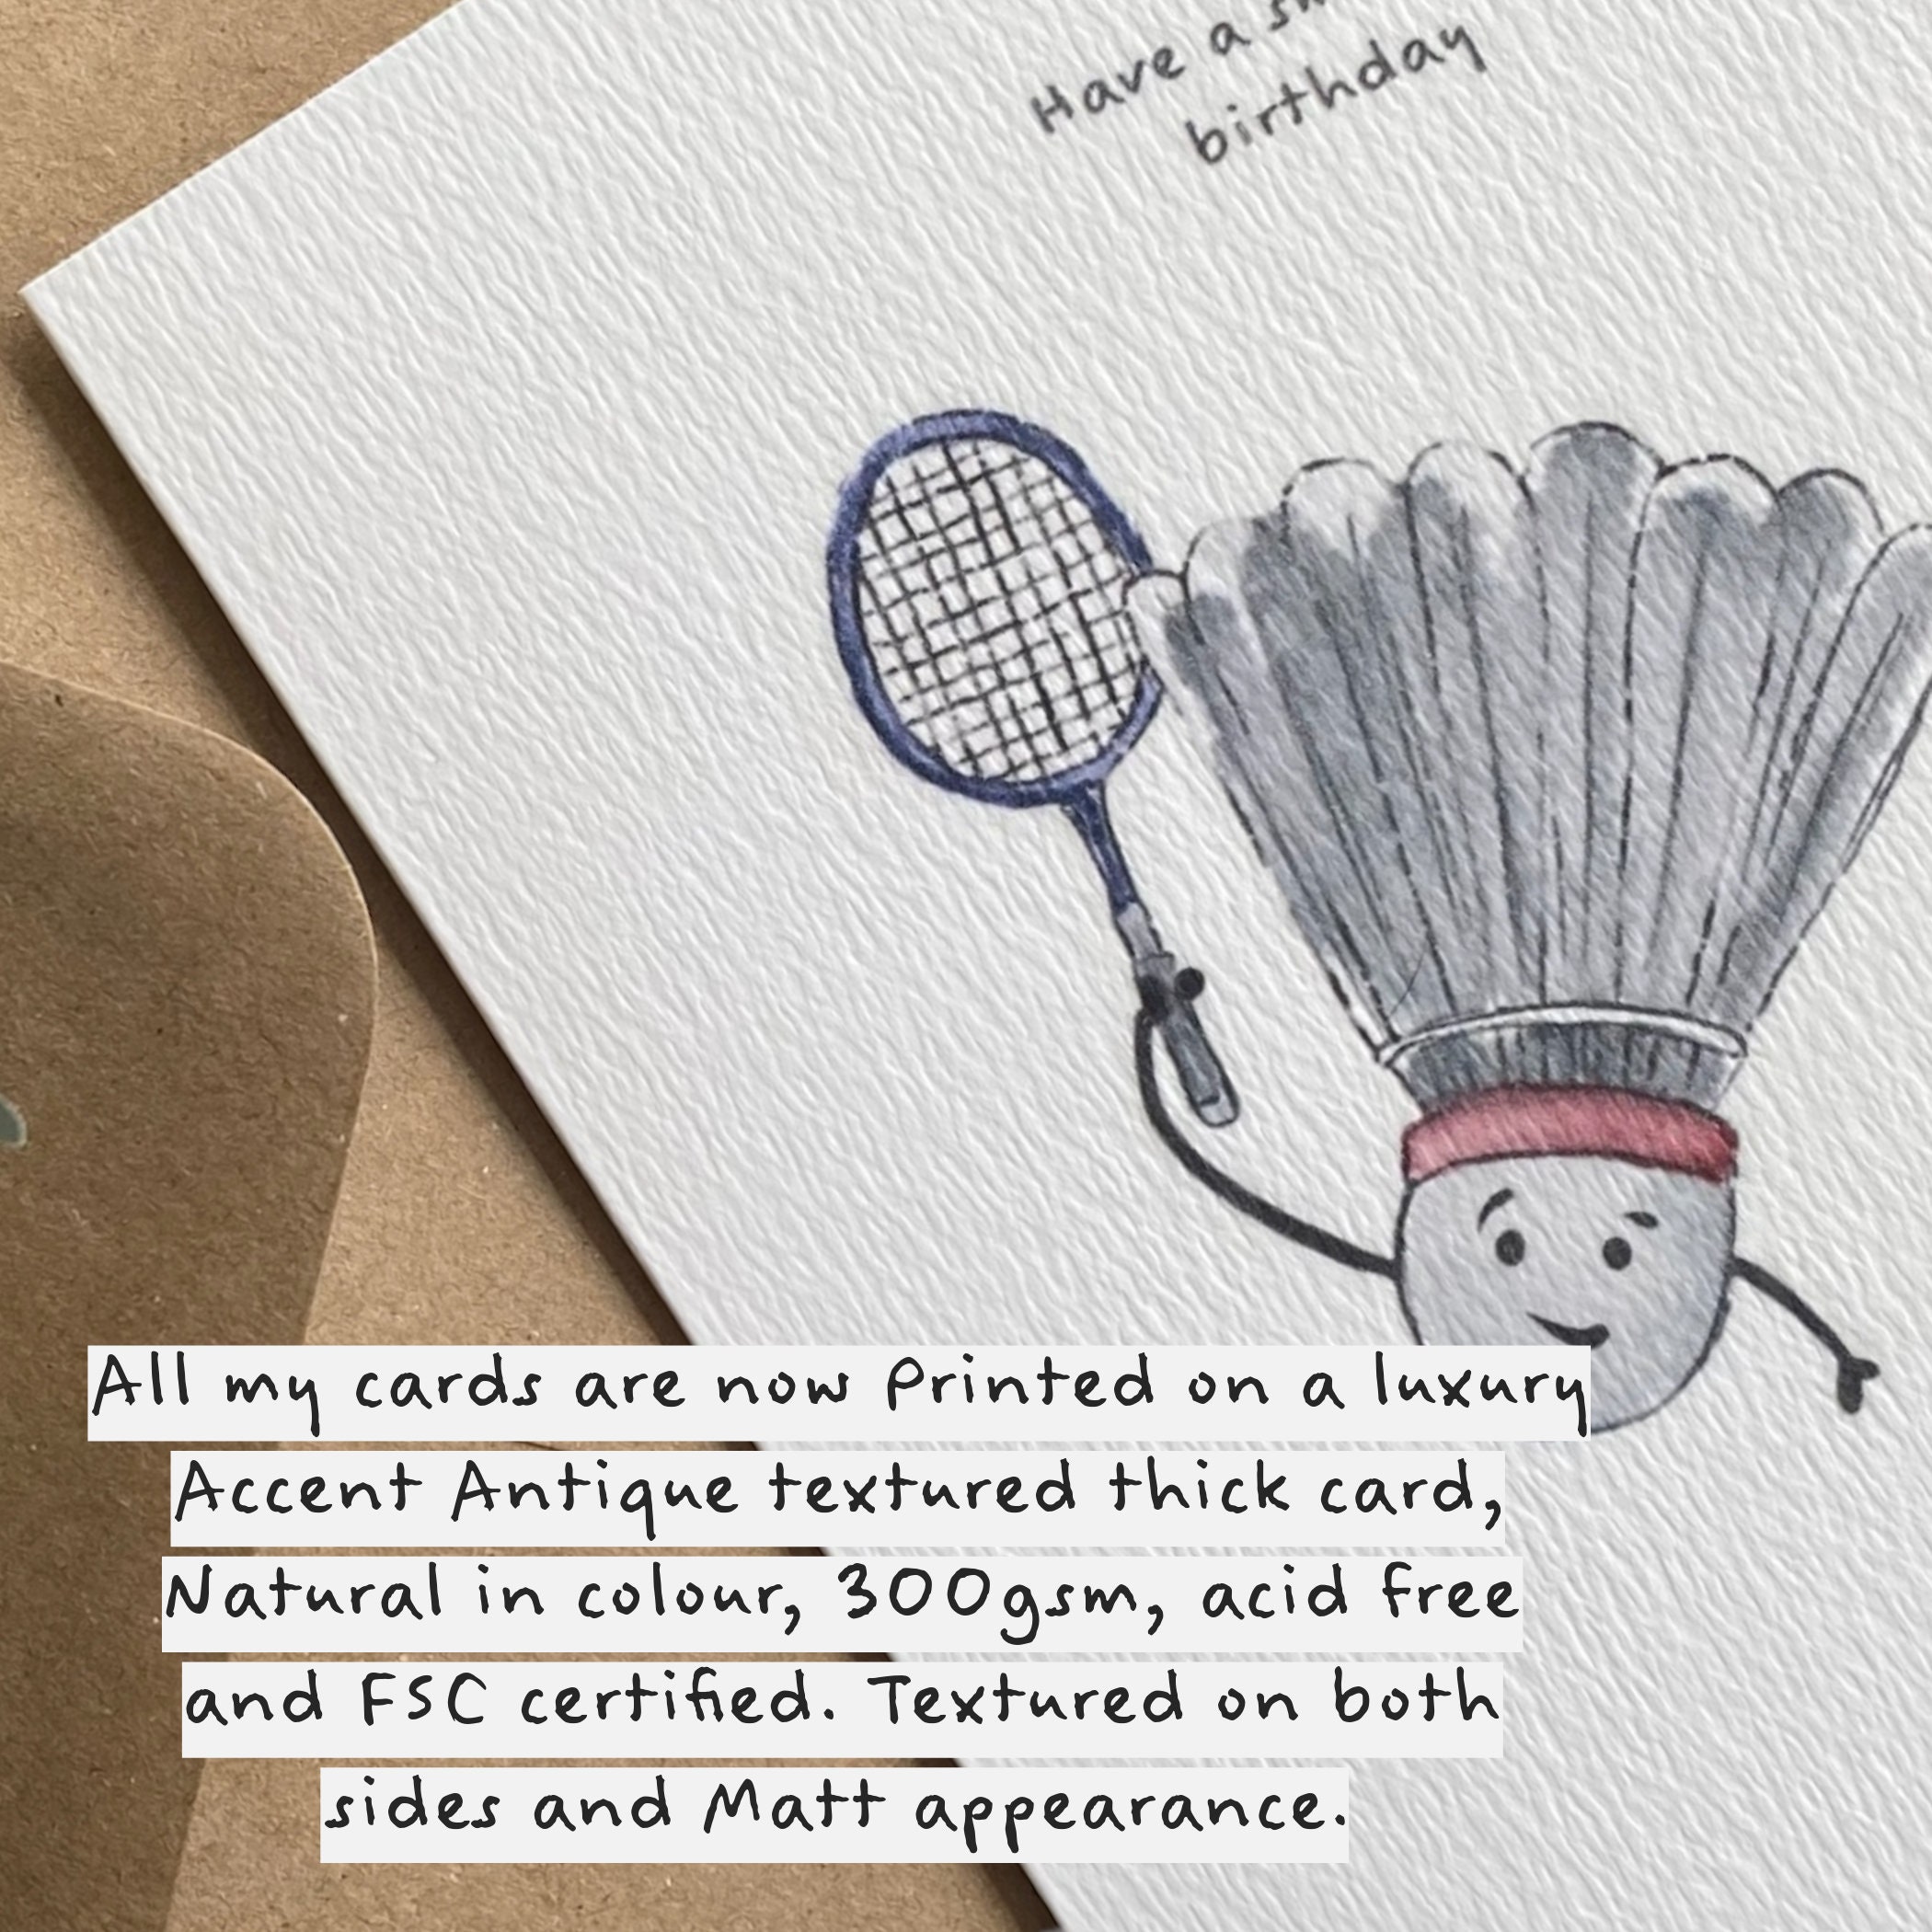 Have a
birthday
All my cards are now Printed on a luxury
Accent Antique textured thick card,
Natural in colour, 300gsm, acid free
and FSC certified. Textured on both
sides and Matt appearance.